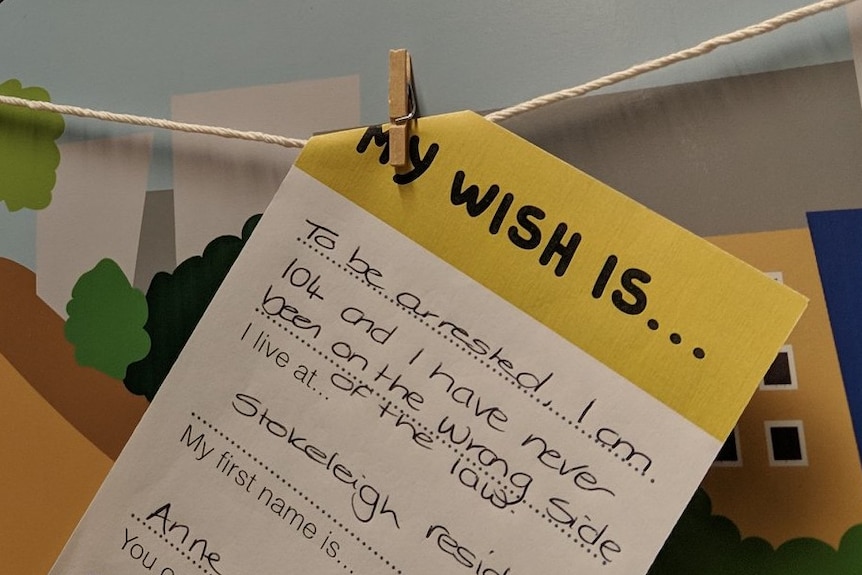 MY WISH IS...
To be arrested. I am
104 and I have never
been on the wrong side
of the law.
I live at...
Stokeleigh resid
My first name is...
Anne
You